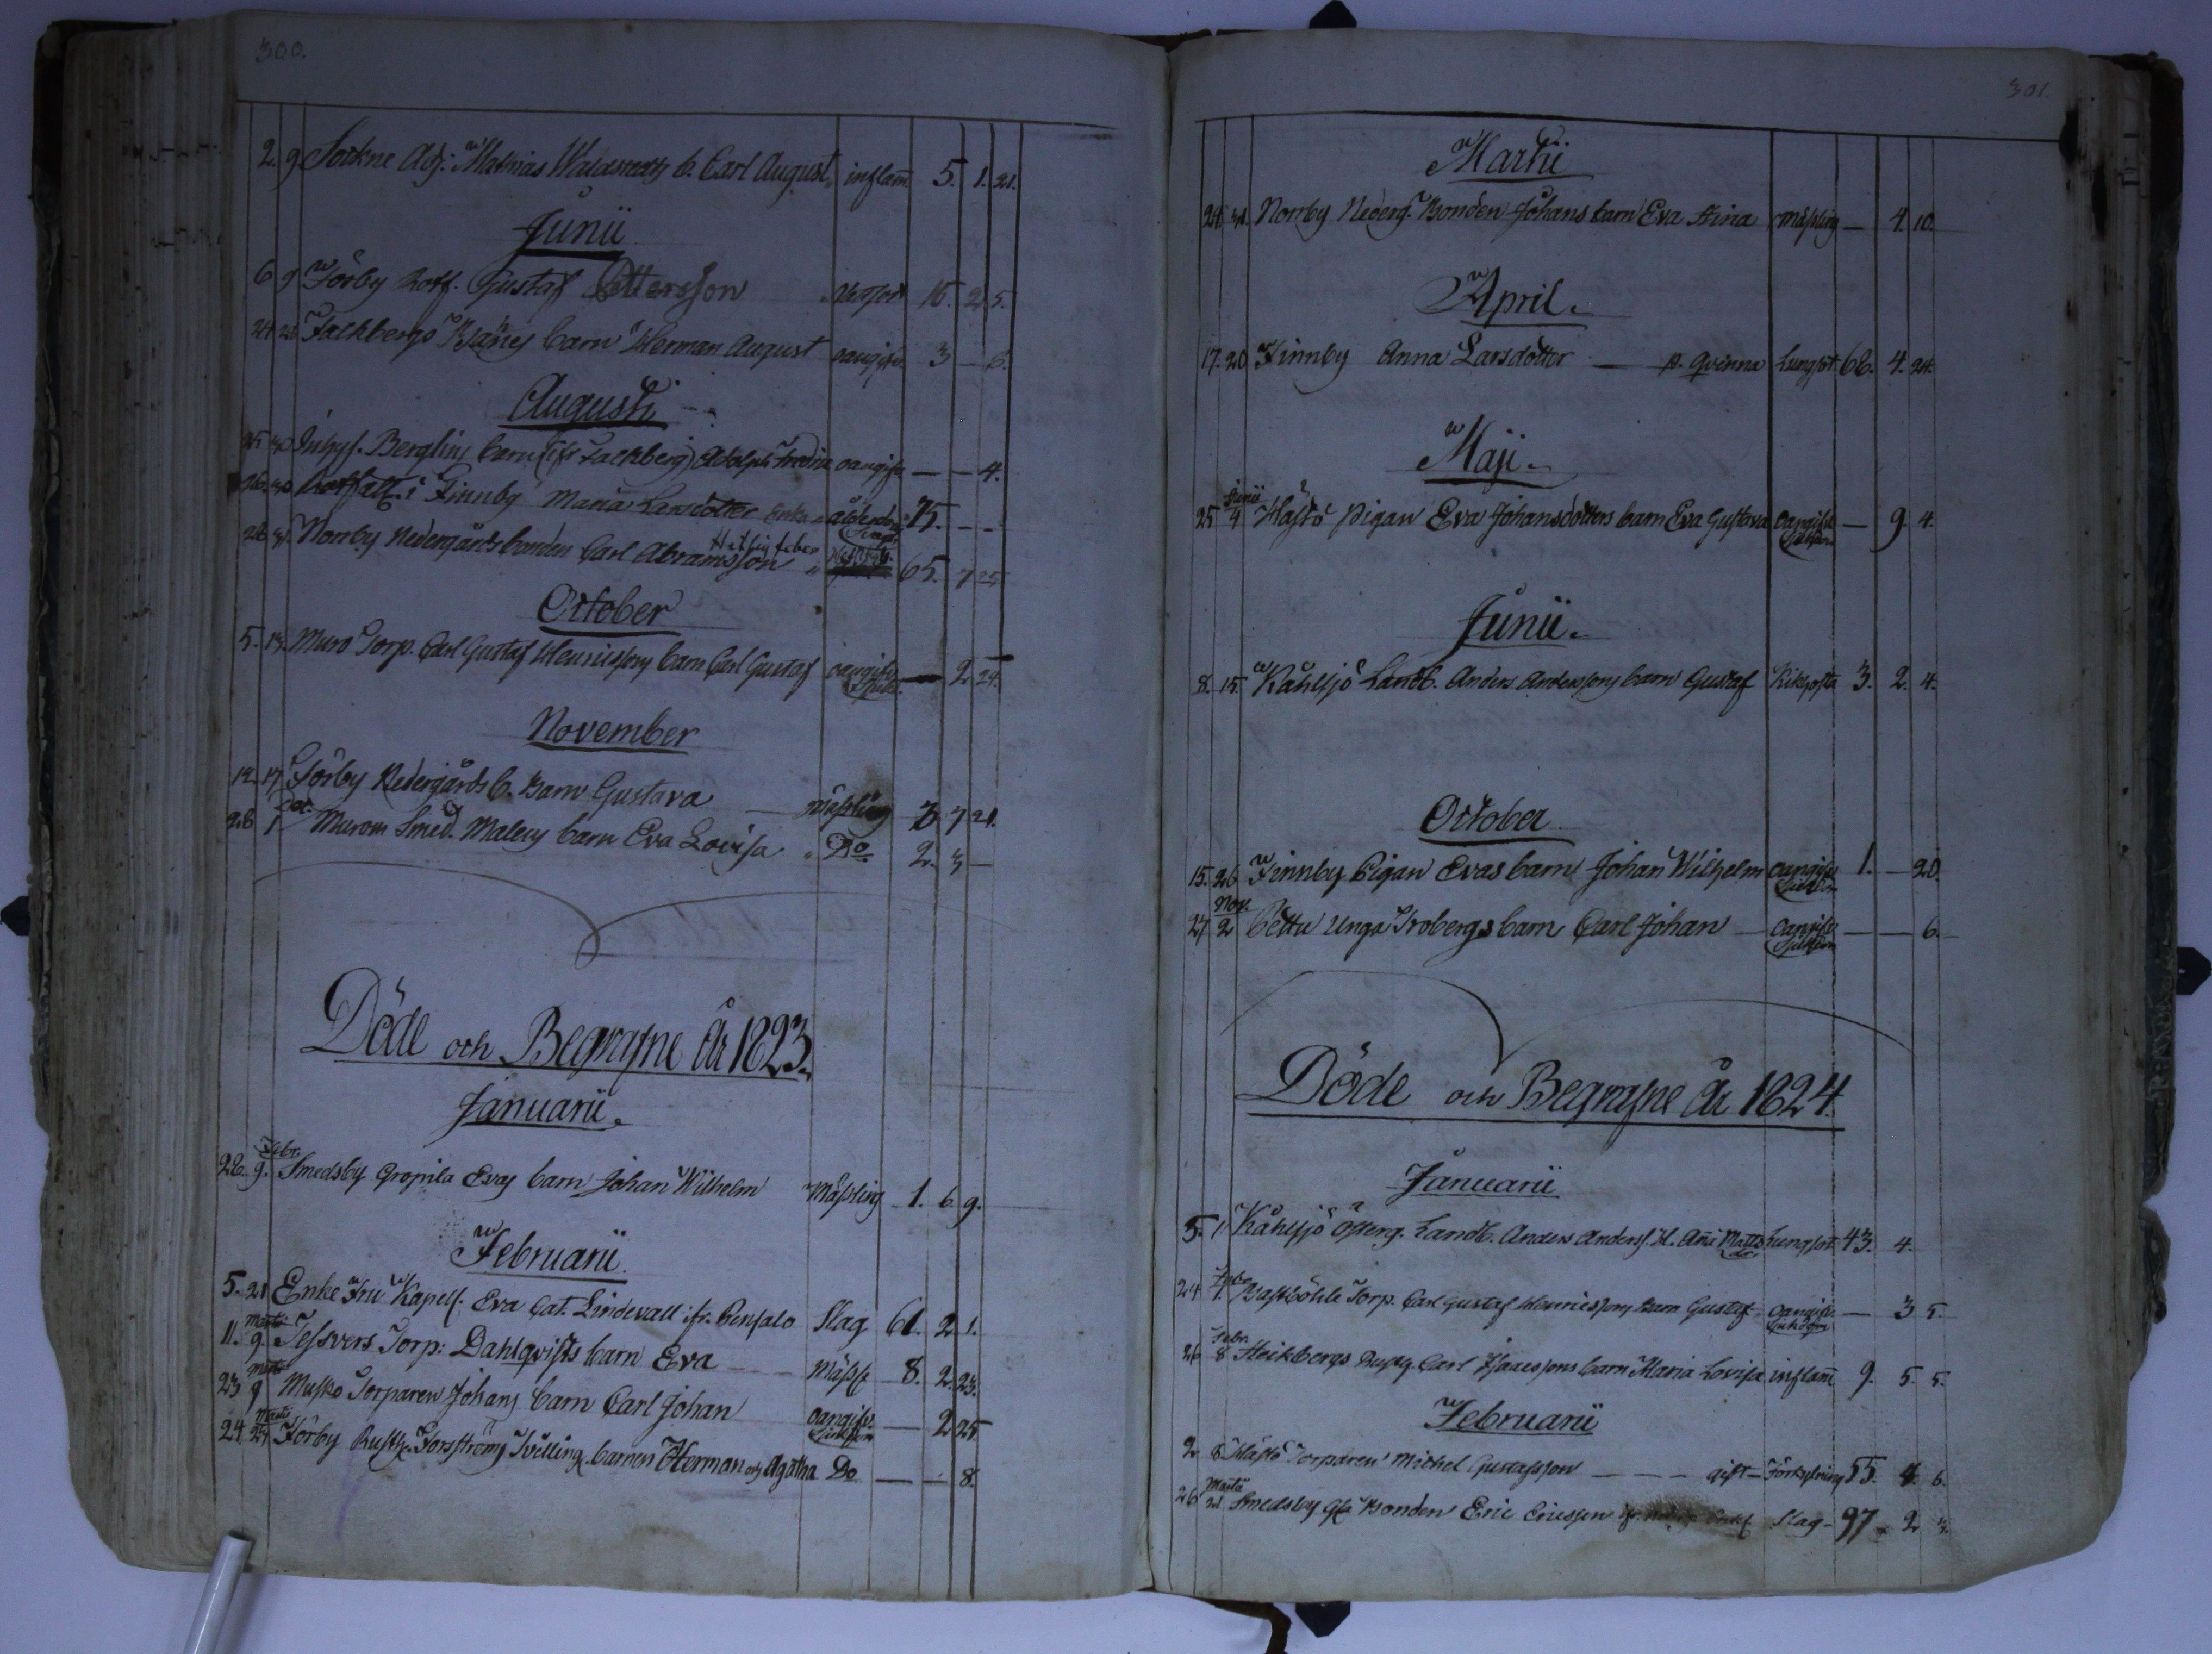 300.
2. 9 Sockne Adj: Mathias Waldstedts b. Carl August inflam̄. 5. 1. 21.
Junii
6 9 Förby Gustaf Ottersson 2 5.
24 Falkbergs barn Herman August oangifv. 3 — 6.
Augusti
25 30 Inhys. Berglins barn (ifr Falkberg) Adolph Fredric oangifv. — — 4.
26. 30 i Finnby Maria Larsdotter Enka ålderdoms 75. — —
Svagh.
Hetsig feber
28 31. Norrby Nedergårds bonden Carl Abramsson 65. 7 25
October
5. 13. Muro Torp. Carl Gustaf Henricssons barn Carl Gustaf oangifv. — 2 24.
Sjuk.
November
12. 17 Förby Nedergårds b. barn Gustava — Mässling 3 7 21.
Dec.
28 1 Murom Smed. Malens barn Eva Lovisa Do. 2. 3 —
Döde och Begrafne År 1823.
Januarii.
Febr.
28. 9. Smedsby Evas barn Johan Wilhelm Mässling 1. 6. 9.
Februarii.
5. 21 Enke Fru Kapell. Eva Cat. Lindevall ifr. Pensalo Slag 61. 2. 1.
Martii
11. 9. Tessvers Torp: Dahlqvists barn Eva — Mässl. 8. 2. 23.
Martii
23 9 Musko Torparen Johans barn Carl Johan oangifv. — 2 25
Sjukdom
Martii
24 27 Förby Rusth. Forsströms Tvillingbarnen Herman och Agatha Do — — 8.
301.
Martii
24. 31. Norrby Nederg. Bonden Johans barn Eva Stina Mässling — 4. 10.
April.
17. 20 Finnby Anna Larsdotter — p. qvinna Lungsot 68. 4. 24.
Maji.
Junii
25 4 Hästö pigan Eva Johansdotters barn Eva Gustava Oangifv. — 9. 4.
Sjukdom
Junii.
8. 15. Kåhlsjö Landb. Anders Anderssons barn Gustaf Kikhosta 3. 2. 4.
October
15. 26 Finnby Pigan Evas barn Johan Wilhelm oangifv. 1. — 20.
Sjukdom
Nov.
27 2 Pettu Unga Frobergs barn Carl Johan — oangifv. — — 6.
Sjukdom
Döde och Begrafne År 1824.
Januarii
5. 11 Kåhlsjö Österg. Landb. Anders Anderss. H. Aña Matts Lungsot 43. 4.
dr
Febr.
24 1. Bastböhle Torp. Carl Gustaf Henricssons barn Gustaf oangifv. — 3 5.
Sjukdom
Febr.
26 8 Heikbergs Rusth. Carl Isacssons barn Maria Lovisa inflam̄ 9. 5. 5.
Februarii
2 8. Hästö Torparen Michel Gustafsson — — — gift — Förkylning 55. 4. 6.
Martii
26 21. Smedsby gla Bonden Eric Ericsson Slag — 97 2